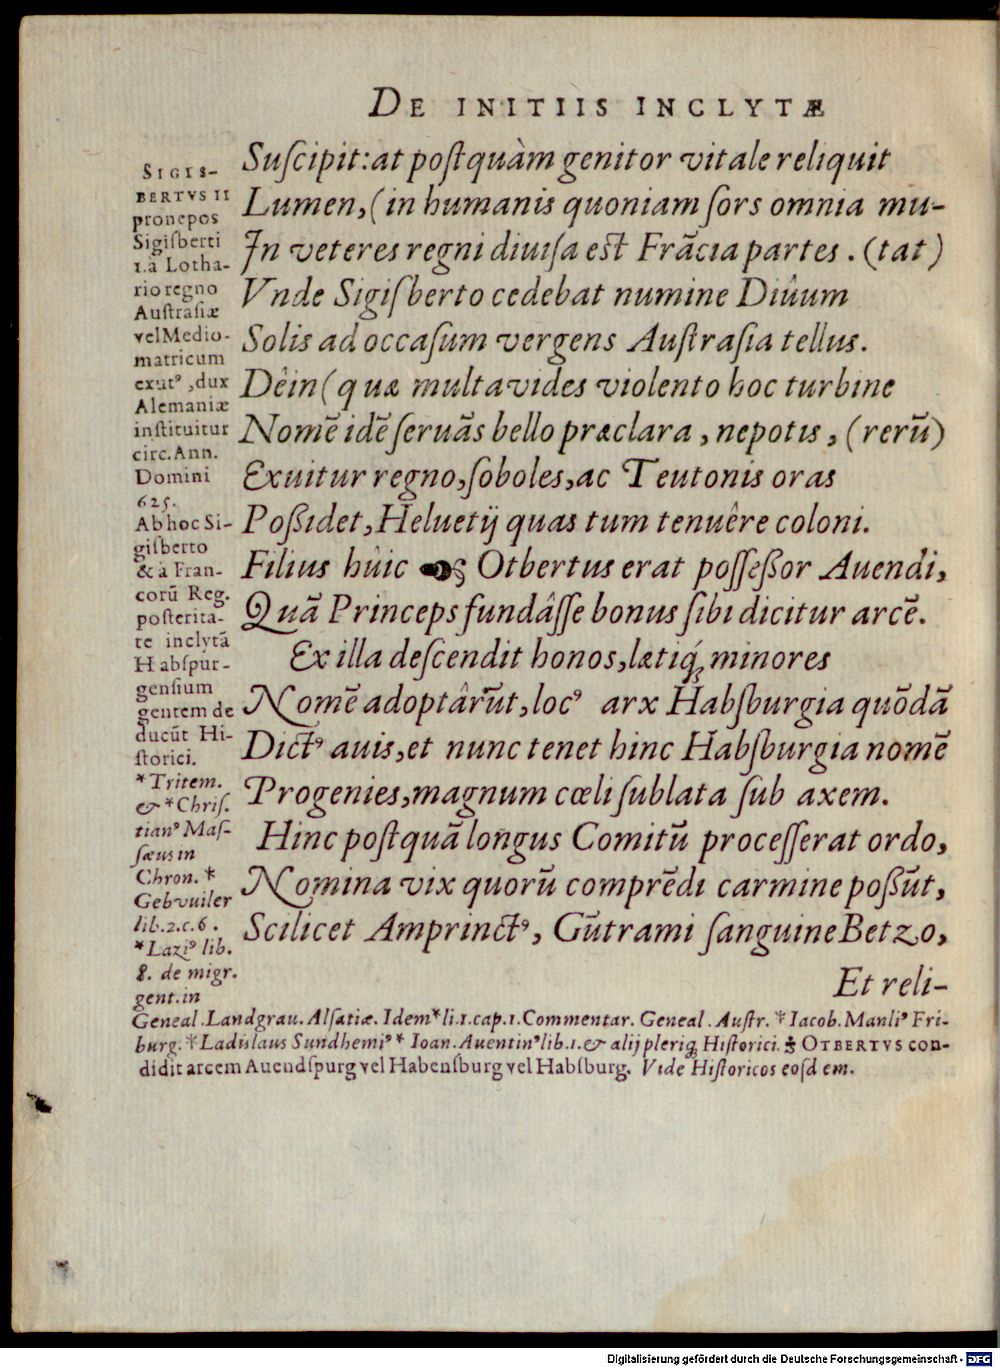 DE INITIIS INCLYTÆ
Suſcipit: at poſtquàm genitor vitale reliquit
Lumen, (in humanis quoniam ſors omnia mu-
In veteres regni diuiſa eſt Frãcia partes. (tat)
Vnde Sigiſberto cedebat numine Diûum
Solis ad occaſum vergens Auſtraſia tellus.
Dêin (quæ multa vides violento hoc turbine
Nomẽ idẽ ſeruãs bello præclara, nepotis, (rerũ)
Exuitur regno, ſoboles, ac Teutonis oras
Poßidet, Heluetij quas tum tenuêre coloni.
Filius hûic Otbertus erat poſſeßor Auendi,
Quã Princeps fundâſſe bonus ſibi dicitur arcẽ.
Ex illa deſcendit honos, lætiq́; minores
Nomẽ adoptârũt, locꝰ arx Habſburgia quõdã
Dictꝰ auis, et nunc tenet hinc Habſburgia nomẽ
Progenies, magnum cœli ſublata ſub axem.
Hinc poſtquã longus Comitũ proceſſerat ordo,
Nomina vix quorũ comprẽdi carmine poßũt,
Scilicet Amprinctꝰ, Gũtrami ſanguine Betzo,
Et reli-
SIGIS-
BERTVS II
pronepos
Sigiſberti
1. à Lotha-
rio regno
Auſtraſiæ
vel Medio-
matricum
exutꝰ, dux
Alemaniæ
inſtituitur
circ. Ann.
Domini
625.
Ab hoc Si-
giſberto
& à Fran-
corũ Reg.
poſterita-
te inclytã
Habſpur-
genſium
gentem de
ducũt Hi-
ſtorici.
*Tritem.
& *Chriſ.
tianꝰ Maſ-
ſæus in
Chron. *
Gebvuiler
lib. 2. c. 6.
*Laziꝰ lib.
8. de migr.
gent. in
Geneal. Landgrau. Alſatiæ. Idem *li. 1. cap. 1. Commentar. Geneal. Auſtr. *Iacob. Manliꝰ Fri-
burg. *Ladislaus Sundhemiꝰ * Ioan. Auentinꝰ lib. 1. & alij pleriq; Hiſtorici. OTBERTVS con-
didit arcem Auendſpurg vel Habenſburg vel Habſburg. Vide Hiſtoricos eoſdem.
Digitalisierung gefördert durch die Deutsche Forschungsgemeinschaft - DFG